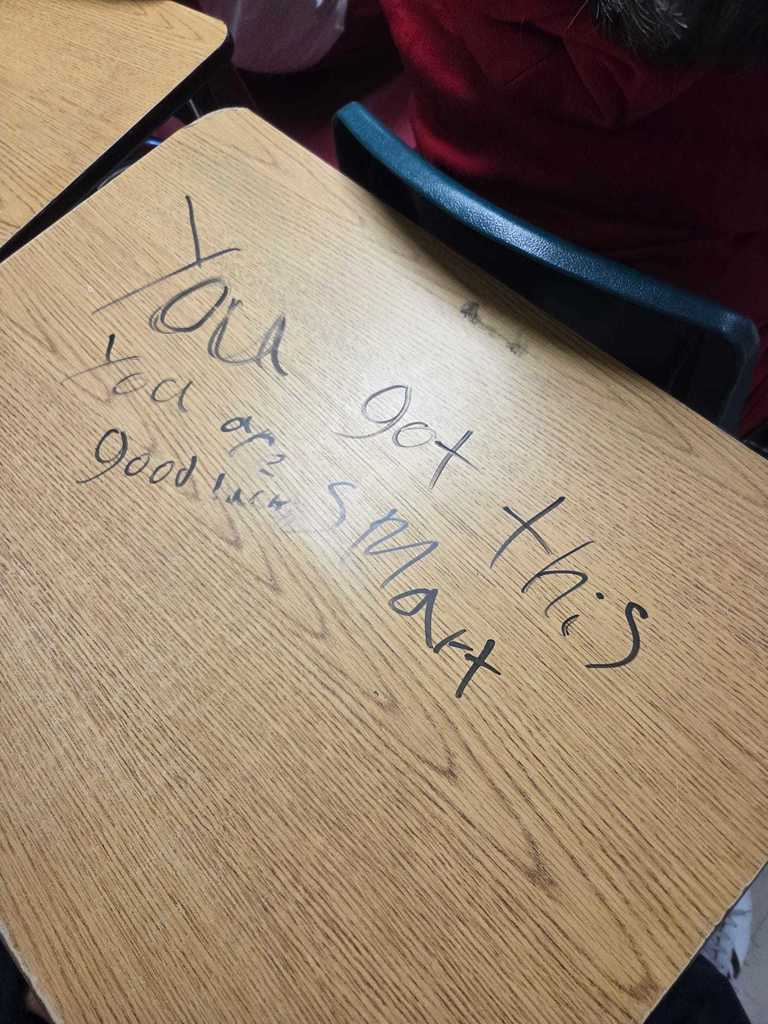 You got this
You are smart
good luck